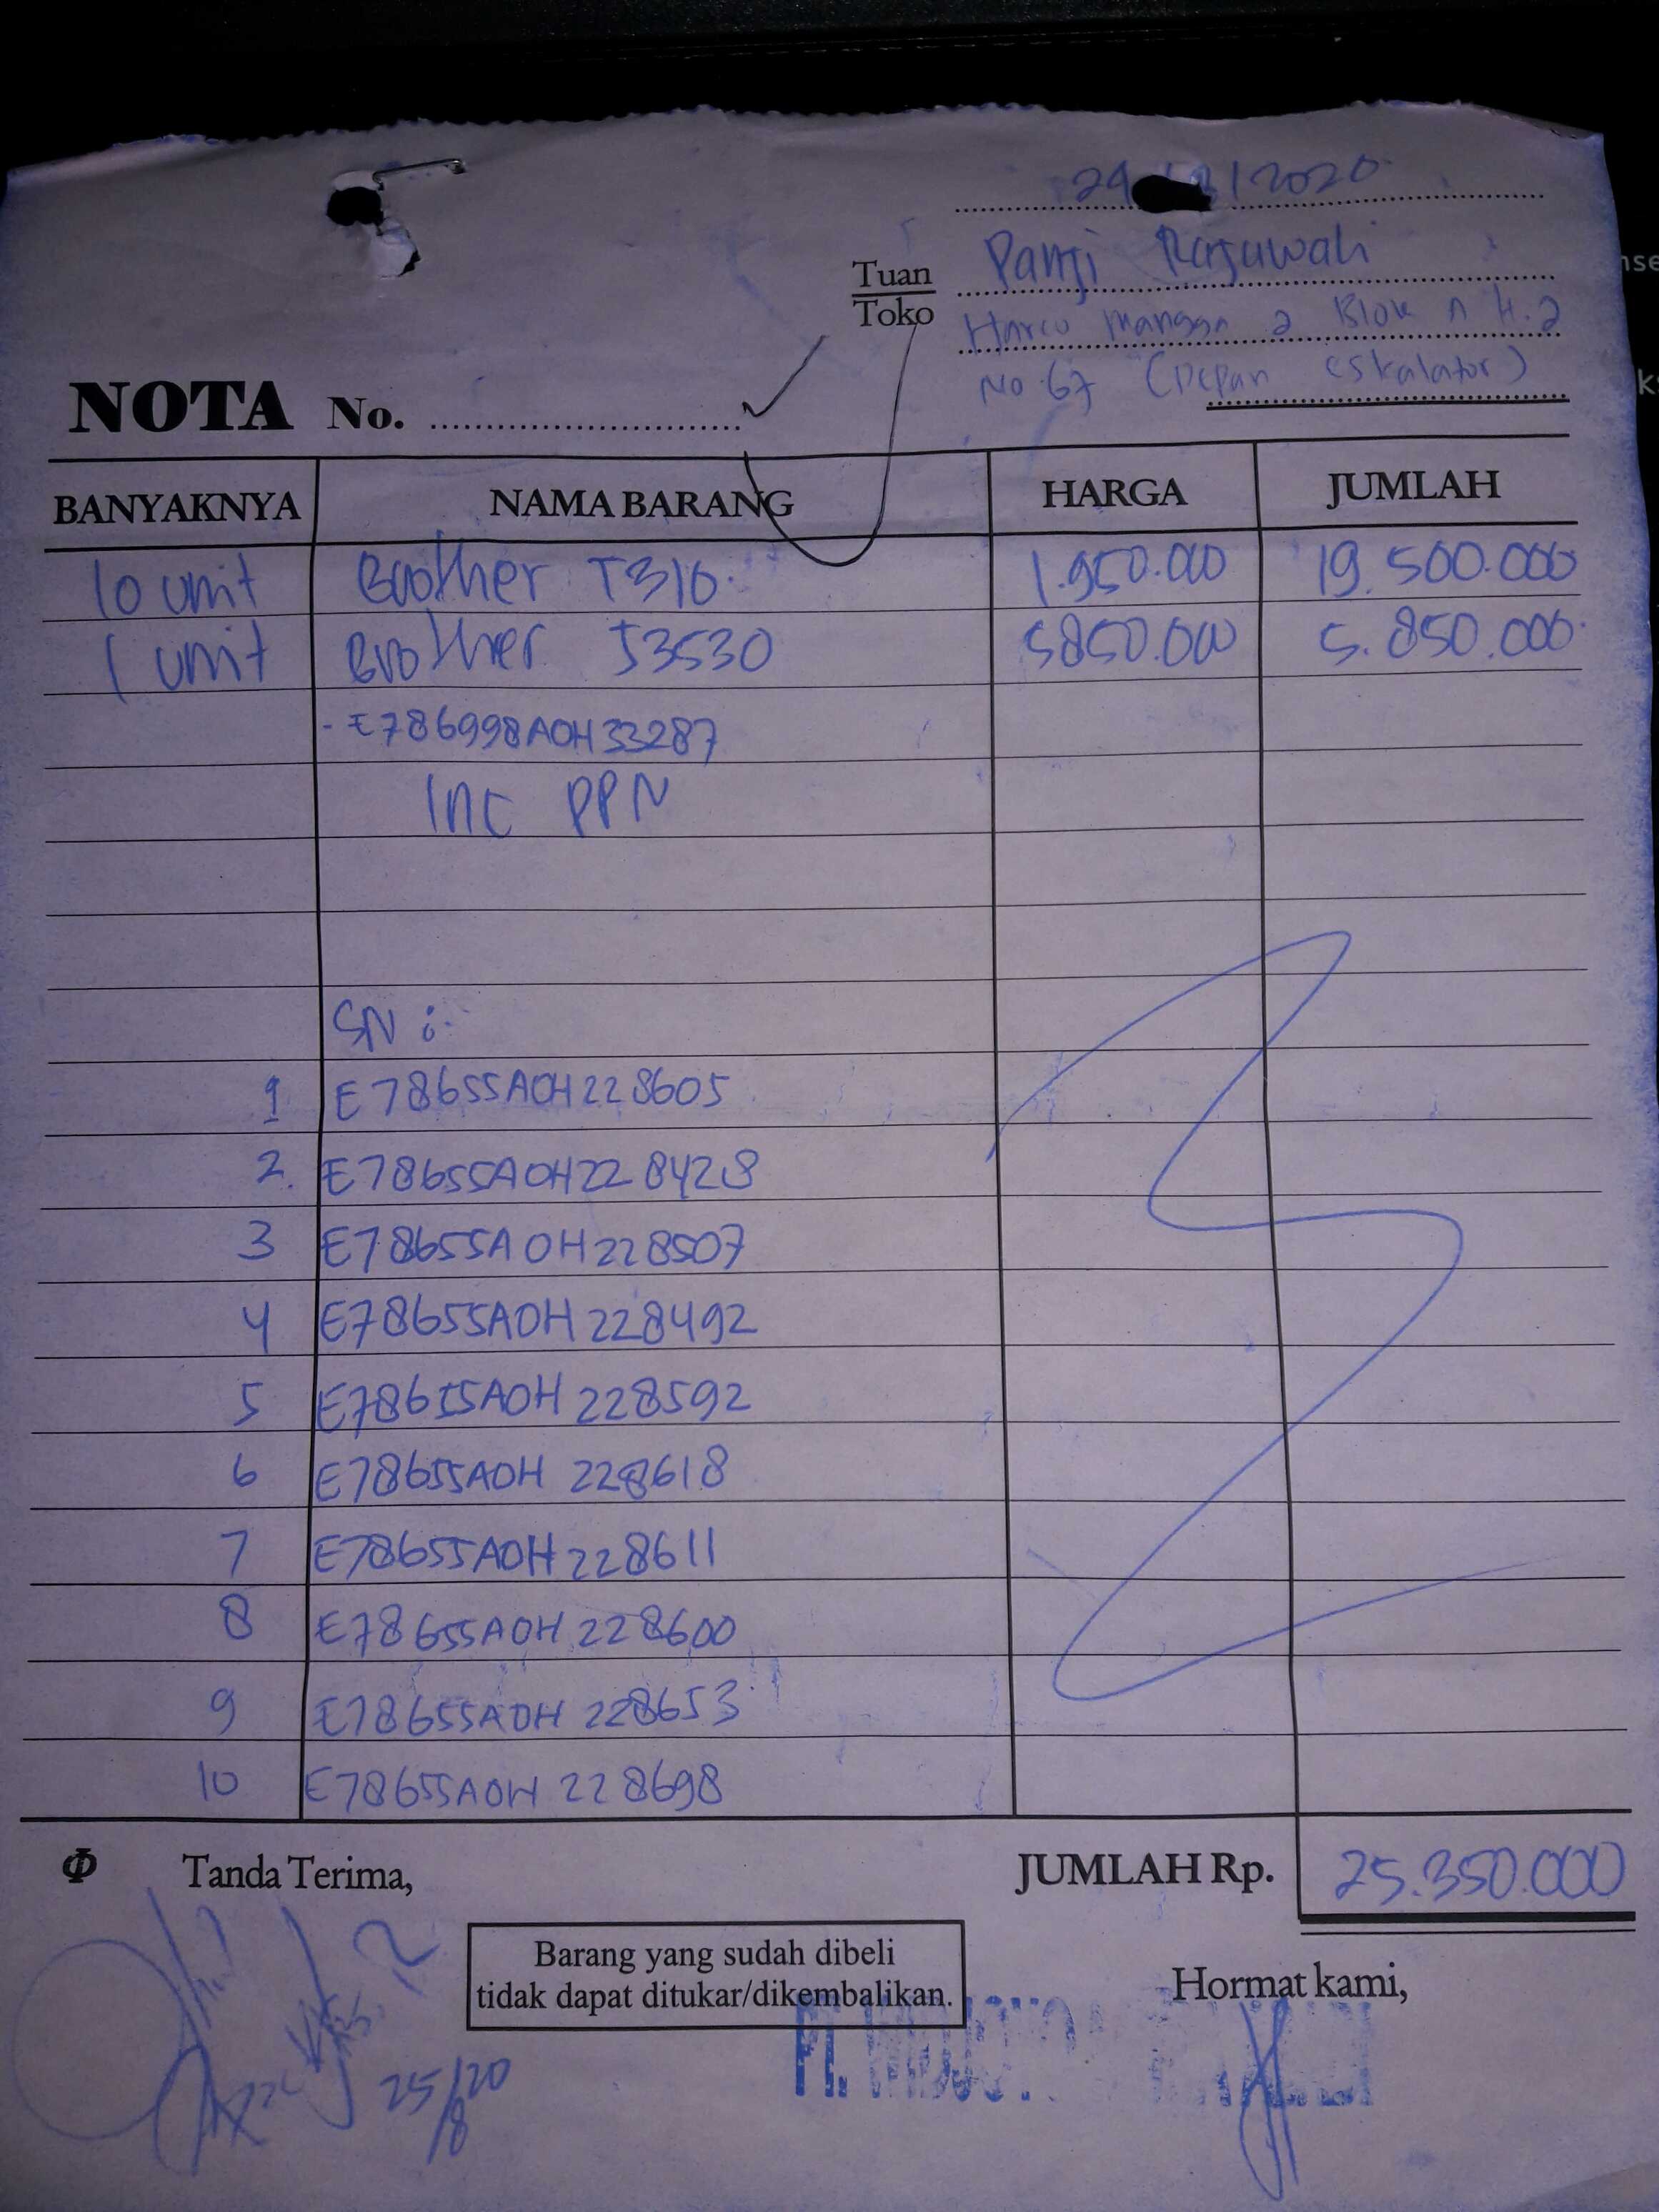 24 /2020
Tuan
Toko
Panji Rajawali
Harco Mangga 2 Blok A H.2
No 67 (Depan eskalator)
NOTA No.
BANYAKNYA NAMA BARANG HARGA JUMLAH
10 unit Brother T310 1.950.000 19.500.000
1 unit Brother J3530 5850.000 5.850.000
- E786998A0H33287
Inc PPN
SN :
1 E78655A0H228605
2. E78655A0H228428
3 E78655A0H228507
4 E78655A0H228492
5 E78655A0H228592
6 E78655A0H 228618
7 E78655A0H228611
8 E78655A0H 228600
9 E78655A0H 228653
10 E78655A0H 228698
Tanda Terima,
JUMLAH Rp. 25.350.000
Barang yang sudah dibeli
tidak dapat ditukar/dikembalikan.
Hormat kami,
PT.
25/8/20